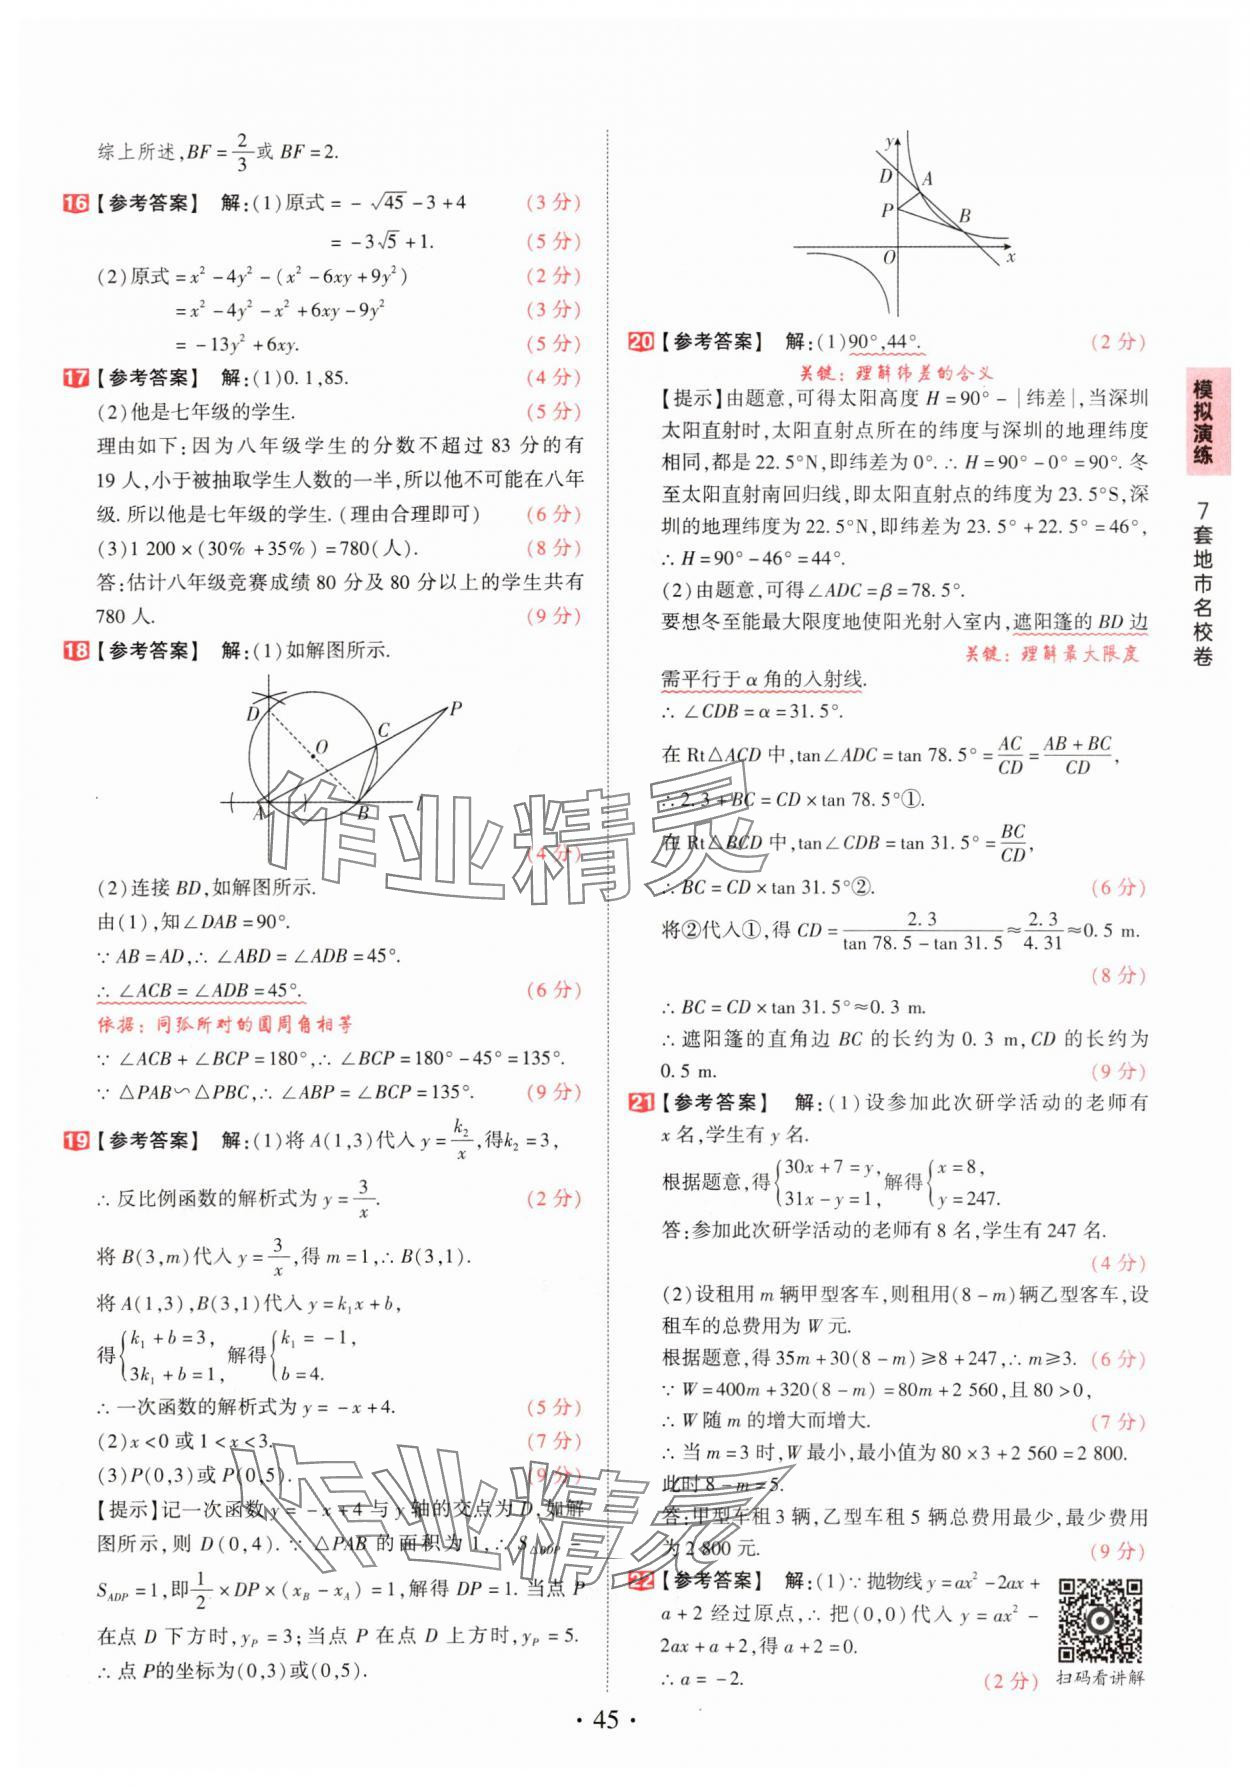 综上所述,BF=2/3或 BF=2.
16【参考答案】 解:(1)原式=-√45-3+4 (3分)
=-3√5+1. (5分)
(2)原式=x²-4y²-(x²-6xy+9y²) (2分)
=x²-4y²-x²+6xy-9y² (3分)
=-13y²+6xy. (5分)
17【参考答案】 解:(1)0.1,85. (4分)
(2)他是七年级的学生. (5分)
理由如下:因为八年级学生的分数不超过 83 分的有
19 人,小于被抽取学生人数的一半,所以他不可能在八年
级.所以他是七年级的学生.(理由合理即可) (6分)
(3)1 200×(30%+35%)=780(人). (8分)
答:估计八年级竞赛成绩 80 分及 80 分以上的学生共有
780 人. (9分)
18【参考答案】 解:(1)如解图所示.
D
P
C
O
A
B
l
(4分)
(2)连接 BD,如解图所示.
由(1),知∠DAB=90°.
∵AB=AD,∴∠ABD=∠ADB=45°.
∴∠ACB=∠ADB=45°. (6分)
依据:同弧所对的圆周角相等
∵∠ACB+∠BCP=180°,∴∠BCP=180°-45°=135°.
∵△PAB∽△PBC,∴∠ABP=∠BCP=135°. (9分)
19【参考答案】 解:(1)将 A(1,3)代入 y=k₂/x,得k₂=3,
∴反比例函数的解析式为 y=3/x. (2分)
将 B(3,m)代入 y=3/x,得 m=1,∴B(3,1).
将 A(1,3),B(3,1)代入 y=k₁x+b,
得{k₁+b=3, 3k₁+b=1, 解得{k₁=-1, b=4.
∴一次函数的解析式为 y=-x+4. (5分)
(2)x<0 或 1<x<3. (7分)
(3)P(0,3)或 P(0,5). (9分)
【提示】记一次函数 y=-x+4 与 y 轴的交点为 D,如解
图所示,则 D(0,4).∵△PAB 的面积为 1,∴S△BDP-
S ADP=1,即1/2×DP×(x_B-x_A)=1,解得 DP=1.当点 P
在点 D 下方时,y_P=3;当点 P 在点 D 上方时,y_P=5.
∴点 P的坐标为(0,3)或(0,5).
y
D
A
P
B
O
x
20【参考答案】 解:(1)90°,44°. (2分)
关键:理解纬差的含义
【提示】由题意,可得太阳高度 H=90°-|纬差|,当深圳
太阳直射时,太阳直射点所在的纬度与深圳的地理纬度
相同,都是 22.5°N,即纬差为 0°.∴H=90°-0°=90°.冬
至太阳直射南回归线,即太阳直射点的纬度为 23.5°S,深
圳的地理纬度为 22.5°N,即纬差为 23.5°+22.5°=46°,
∴H=90°-46°=44°.
(2)由题意,可得∠ADC=β=78.5°.
要想冬至能最大限度地使阳光射入室内,遮阳篷的 BD 边
关键:理解最大限度
需平行于 α 角的入射线.
∴∠CDB=α=31.5°.
在 Rt△ACD 中,tan∠ADC=tan 78.5°=AC/CD=(AB+BC)/CD,
∴2.3+BC=CD×tan 78.5°①.
在 Rt△BCD 中,tan∠CDB=tan 31.5°=BC/CD,
∴BC=CD×tan 31.5°②. (6分)
将②代入①,得 CD=2.3/(tan 78.5-tan 31.5)≈2.3/4.31≈0.5 m.
(8分)
∴BC=CD×tan 31.5°≈0.3 m.
∴遮阳篷的直角边 BC 的长约为 0.3 m,CD 的长约为
0.5 m. (9分)
21【参考答案】 解:(1)设参加此次研学活动的老师有
x 名,学生有 y 名.
根据题意,得{30x+7=y, 31x-y=1, 解得{x=8, y=247.
答:参加此次研学活动的老师有 8 名,学生有 247 名.
(4分)
(2)设租用 m 辆甲型客车,则租用(8-m)辆乙型客车,设
租车的总费用为 W 元.
根据题意,得 35m+30(8-m)≥8+247,∴m≥3. (6分)
∵W=400m+320(8-m)=80m+2 560,且 80>0,
∴W 随 m 的增大而增大. (7分)
∴当 m=3 时,W 最小,最小值为 80×3+2 560=2 800.
此时 8-m=5.
答:甲型车租 3 辆,乙型车租 5 辆总费用最少,最少费用
为 2 800 元. (9分)
22【参考答案】 解:(1)∵抛物线 y=ax²-2ax+
a+2 经过原点,∴把(0,0)代入 y=ax²-
2ax+a+2,得 a+2=0.
∴a=-2. (2分)
扫码看讲解
模拟演练
7套地市名校卷
·45·
作业精灵
作业精灵